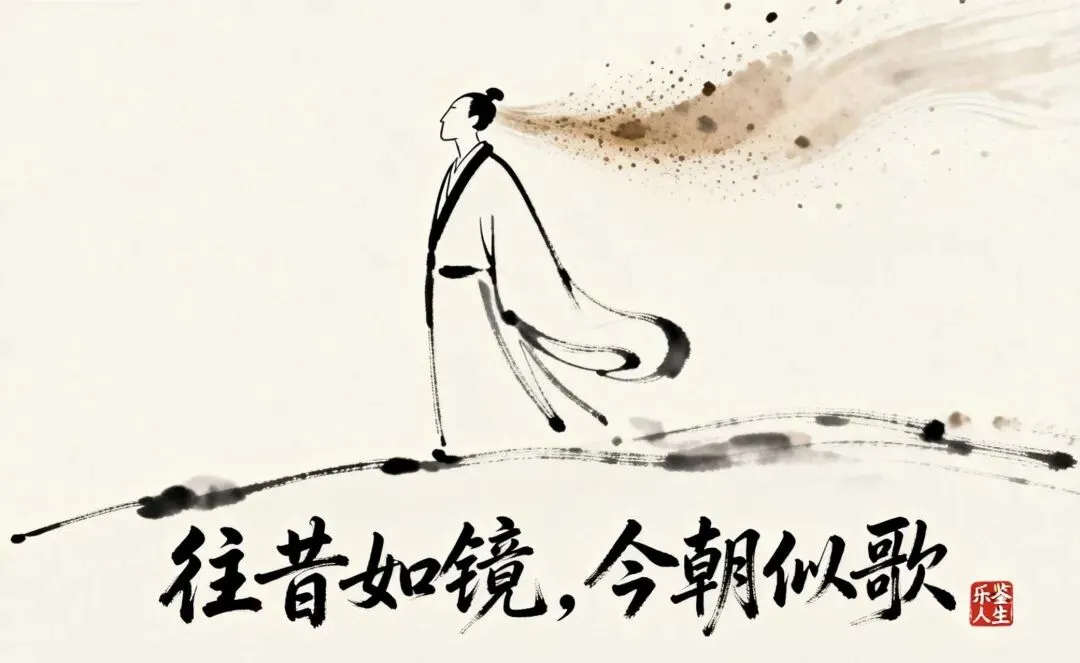 往昔如镜，今朝似歌
鉴生乐人